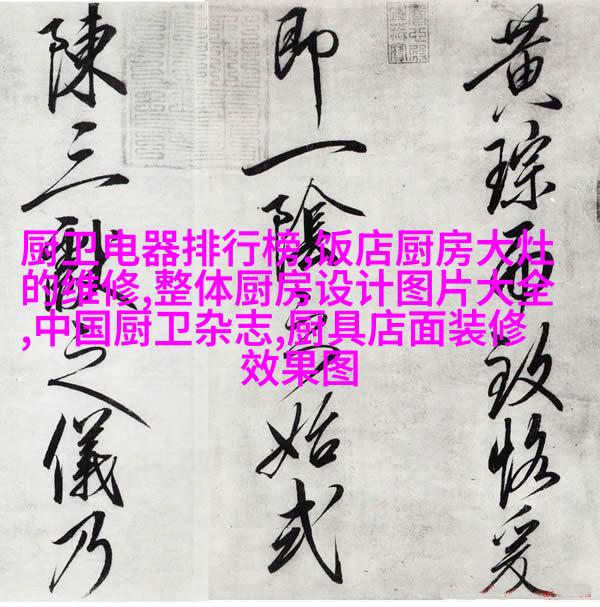 黄琮致恪爰
即一陰始式
陳三獻之儀乃
厨卫电器排行榜,饭店厨房大灶
的维修,整体厨房设计图片大全
,中国厨卫杂志,厨具店面装修
效果图